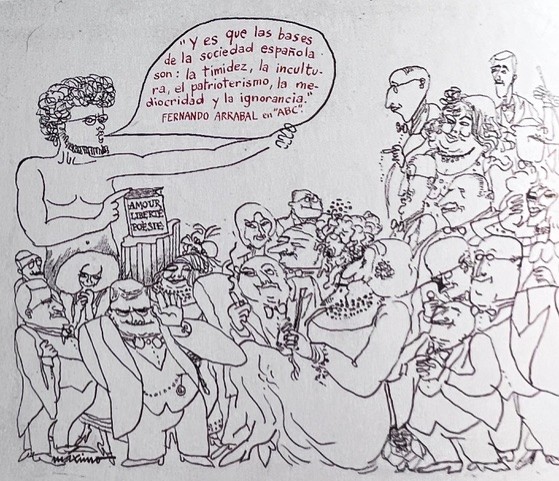 "Y es que las bases
de la sociedad española
son: la timidez, la incultu-
ra, el patrioterismo, la me-
diocridad y la ignorancia."
FERNANDO ARRABAL en "ABC".
AMOUR
LIBERTÉ
POÈSIE
máximo